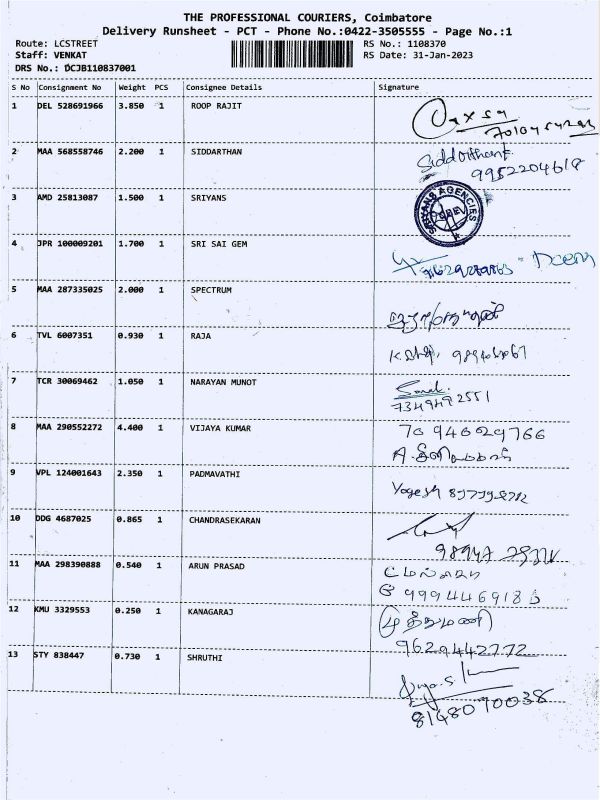 THE PROFESSIONAL COURIERS, Coimbatore
Delivery Runsheet - PCT - Phone No.:0422-3505555 - Page No.:1
Route: LCSTREET RS No.: 1108370
Staff: VENKAT RS Date: 31-Jan-2023
DRS No.: DCJB110837001
S No Consignment No Weight PCS Consignee Details Signature
1 DEL 528691966 3.850 1 ROOP RAJIT
2 MAA 568558746 2.200 1 SIDDARTHAN Siddarthan
9952204618
3 AMD 25813087 1.500 1 SRIYANS SRIYANS AGENCIES
4 JPR 100009201 1.700 1 SRI SAI GEM
5 MAA 287335025 2.000 1 SPECTRUM
6 TVL 6007351 0.930 1 RAJA
7 TCR 30069462 1.050 1 NARAYAN MUNOT
7349492551
8 MAA 290552272 4.400 1 VIJAYA KUMAR
9 VPL 124001643 2.350 1 PADMAVATHI Yogesh
10 DDG 4687025 0.865 1 CHANDRASEKARAN
11 MAA 298390888 0.540 1 ARUN PRASAD
12 KMU 3329553 0.250 1 KANAGARAJ முத்துமணி
9629442772
13 STY 838447 0.730 1 SHRUTHI
8148070038